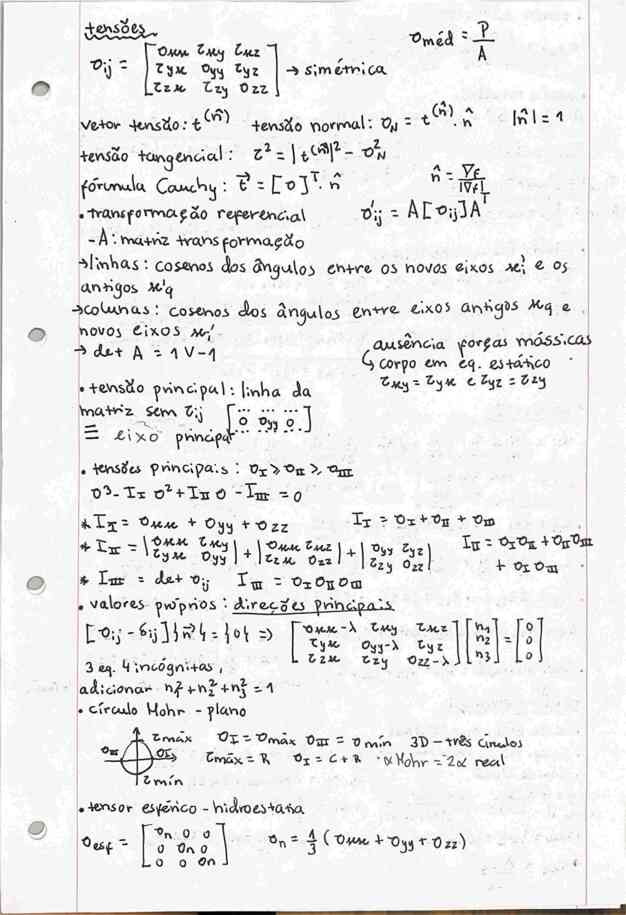 tensões
σméd = P/A
σij = [σxx τxy τxz; τyx σyy τyz; τzx τzy σzz] → simétrica
vetor tensão: t^(n̂) tensão normal: σN = t^(n̂) . n̂ |n̂| = 1
tensão tangencial: τ² = |t^(n̂)|² - σN²
fórumula Cauchy: t⃗ = [σ]^T . n̂ n̂ = ∇f/|∇f|
• transformação referencial σ'ij = A[σij]A^T
- A: matriz transformação
→ linhas: cosenos dos ângulos entre os novos eixos x'i e os
antigos x'q
→ colunas: cosenos dos ângulos entre eixos antigos xq e
novos eixos xi'
→ det A = 1 V -1
ausência forças mássicas
↳ corpo em eq. estático
τxy = τyx e τyz = τzy
• tensão principal: linha da
matriz sem τij [... ... ...; 0 σyy 0; ... ... ...]
≡ eixo principal
• tensões principais: σI ⩾ σII ⩾ σIII
σ³ - II σ² + III σ - IIII = 0
* II = σxx + σyy + σzz II = σI + σII + σIII
* III = |σxx τxy; τyx σyy| + |σxx τxz; τzx σzz| + |σyy τyz; τzy σzz| III = σIσII + σIIσIII
+ σIσIII
* IIII = det σij IIII = σIσIIσIII
• valores próprios: direções principais
[σij - δij]{n⃗} = {0} => [σxx-λ τxy τxz; τyx σyy-λ τyz; τzx τzy σzz-λ] [n1; n2; n3] = [0; 0; 0]
3 eq. 4 incógnitas,
adicionar n1² + n2² + n3² = 1
• círculo Mohr - plano
τmáx σI = σmáx σIII = σmín 3D - três círculos
σIII σI τmáx = R σI = C + R ·αMohr = 2α real
τmín
• tensor esférico - hidroestatia
σesf = [σn 0 0; 0 σn 0; 0 0 σn] σn = 1/3 (σxx + σyy + σzz)